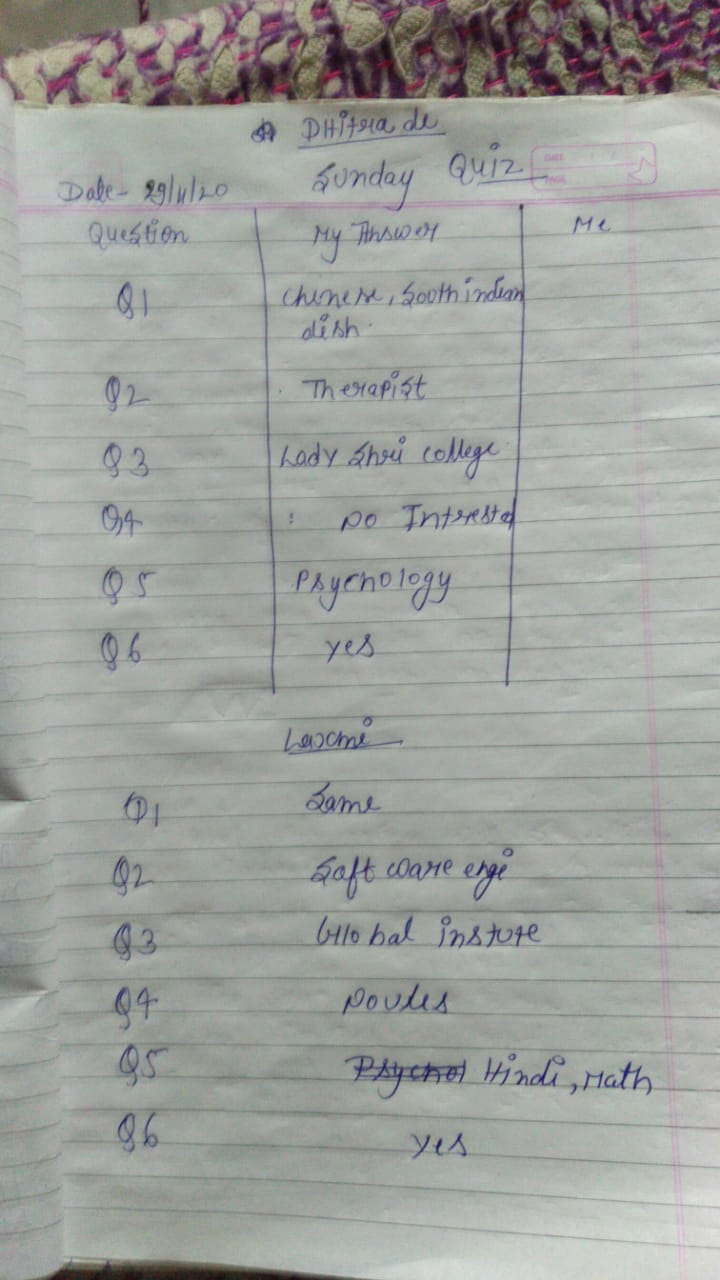 Dhitra de
Sunday Quiz
DATE
PAGE
Date- 29/11/20
Question My Answer Me
Q1 Chinese, South indian
dish.
Q2 Therapist
Q3 Lady Shri college
Q4 : No Intrested
Q5 Psychology
Q6 yes
Laxmi
Q1 Same
Q2 Soft ware engi
Q3 Global insture
Q4
Q5 Psychol Hindi, Math
Q6 yes